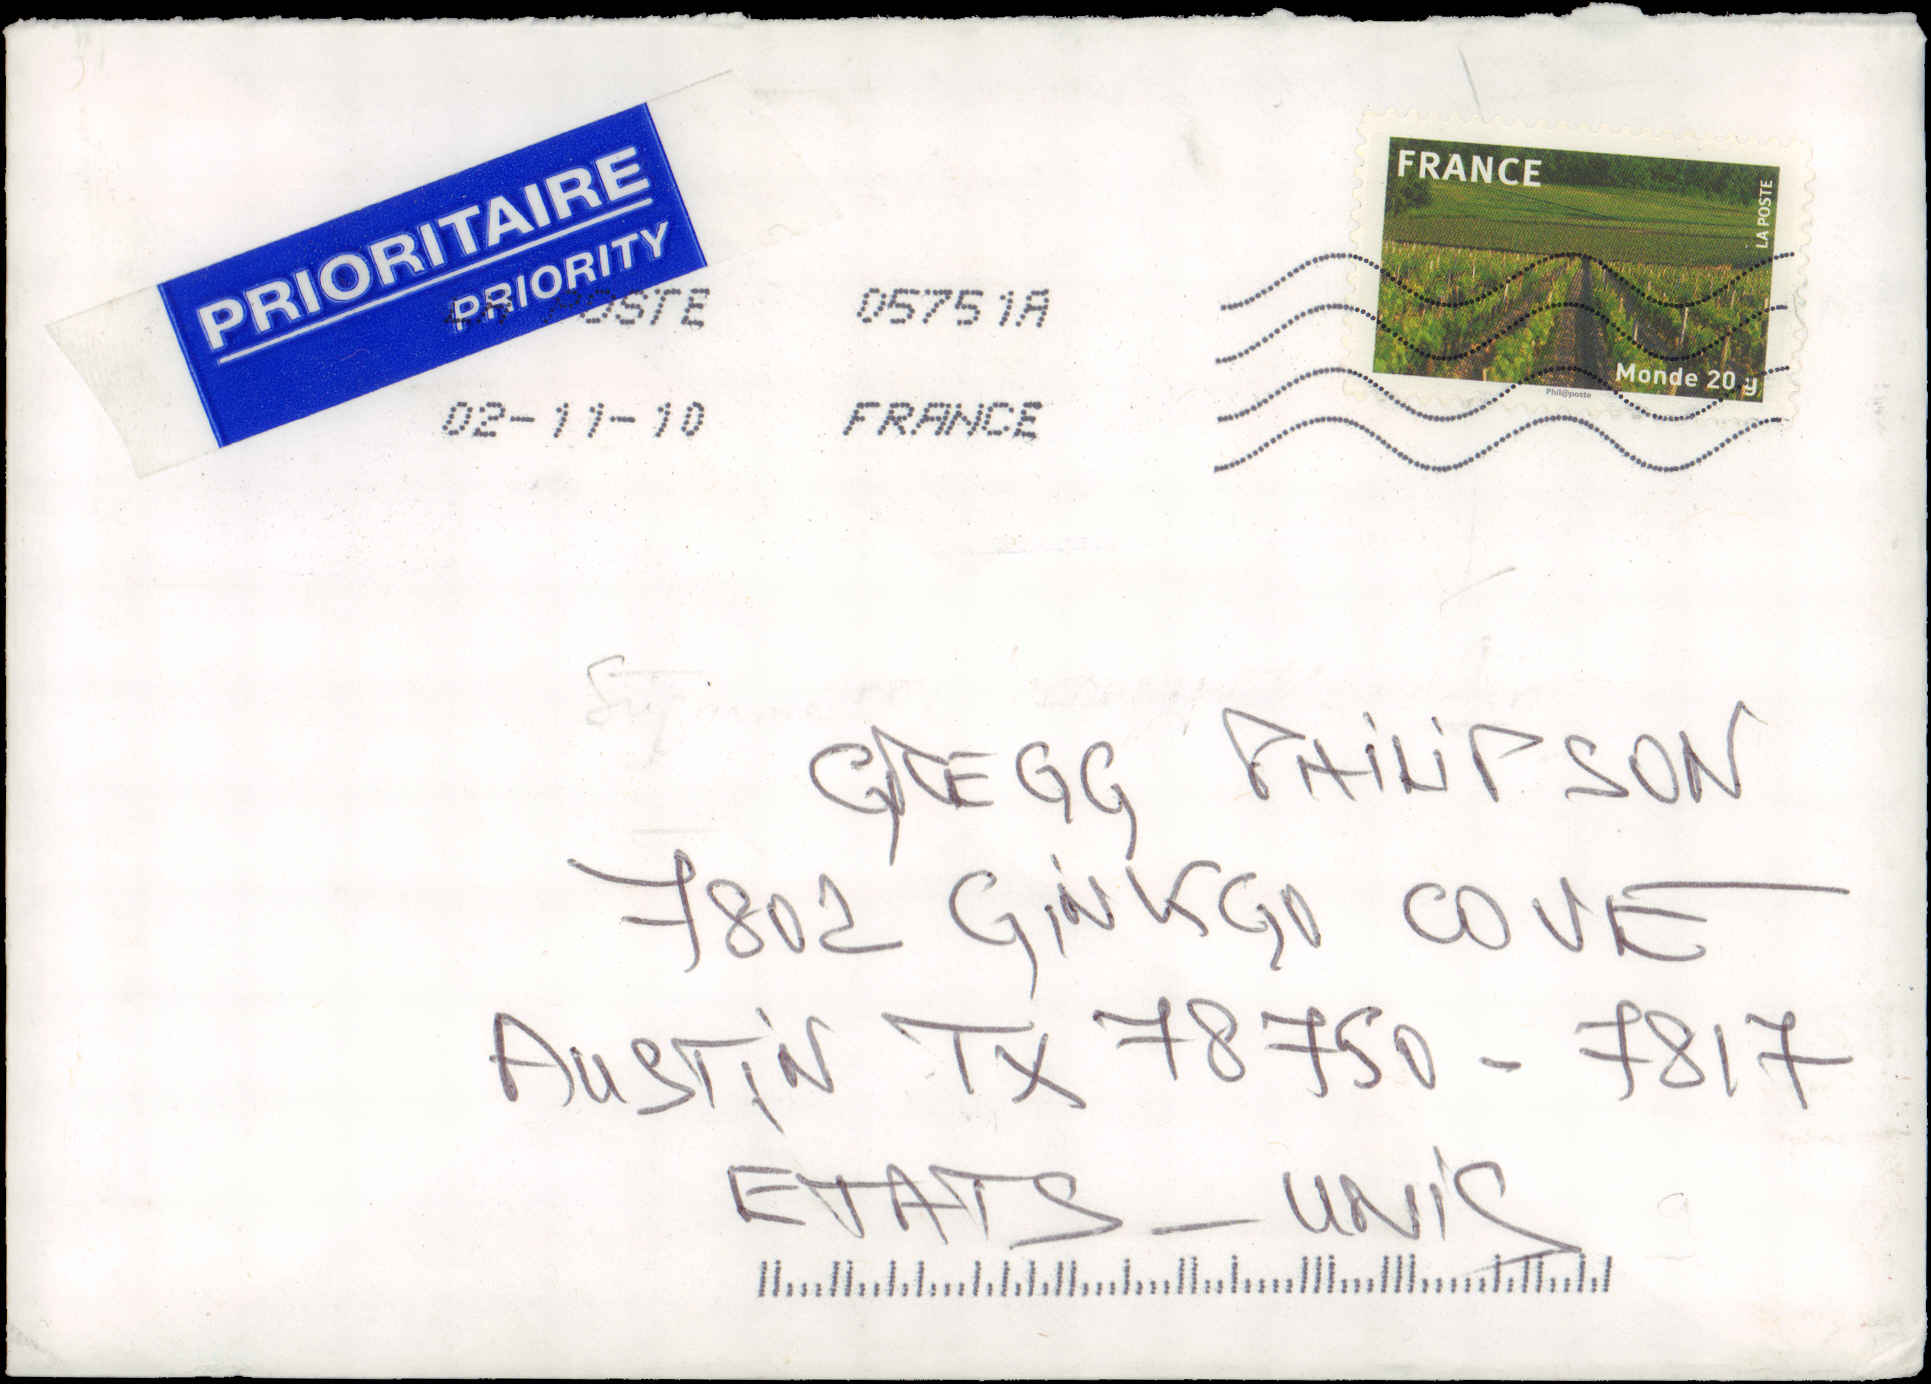 PRIORITAIRE
PRIORITY
FRANCE
LA POSTE
Monde 20 g
Phil@poste
LA POSTE 05751A
02-11-10 FRANCE
GREGG PHILIPSON
7802 GINKGO COVE
AUSTIN TX 78750 - 7817
ETATS - UNIS